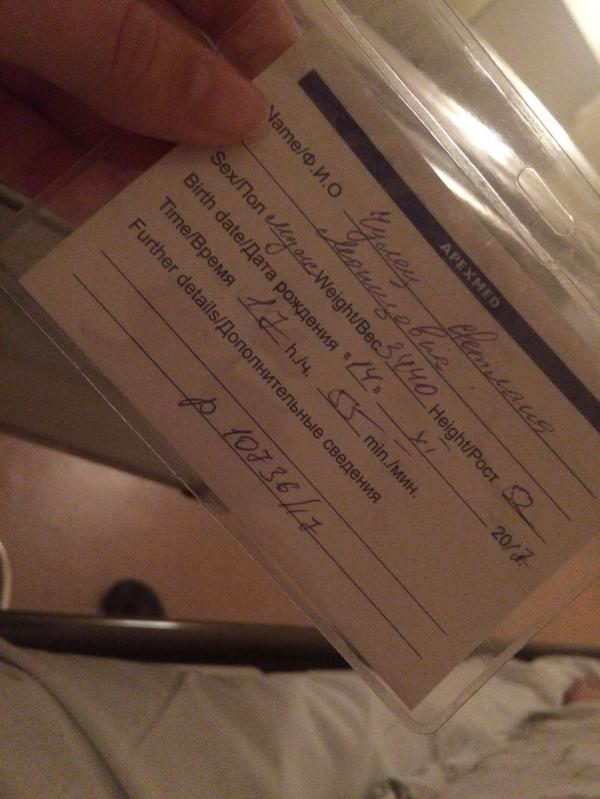 APEXMED
Name/Ф.И.О Чулец Светлана
Леонидовна
Sex/Пол муж Weight/Вес 3440 Height/Рост 52
Birth date/Дата рождения "14" XI 2017
Time/Время 17 h./ч. 55 min./мин.
Further details/Дополнительные сведения
р 10736/17